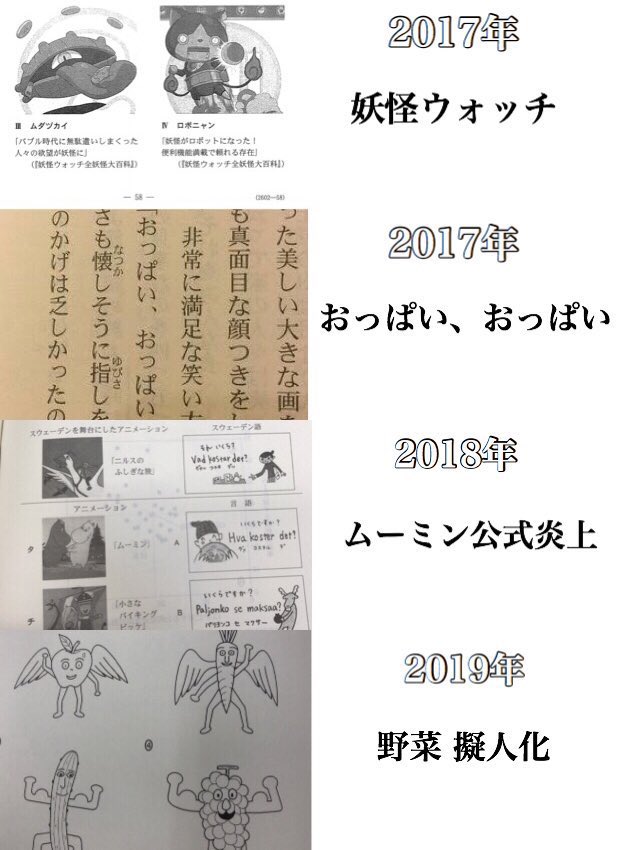 2017年
妖怪ウォッチ
Ⅲ ムダヅカイ
「バブル時代に無駄遣いしまくった
人々の欲望が妖怪に」
(『妖怪ウォッチ全妖怪大百科』)
Ⅳ ロボニャン
「妖怪がロボットになった!
便利機能満載で頼れる存在」
(『妖怪ウォッチ全妖怪大百科』)
— 58 —
(2602—58)
2017年
おっぱい、おっぱい
った美しい大きな画
も真面目な顔つきをし
非常に満足な笑い
「おっぱい、おっぱい
さも懐しそうに指しを
なつか
ゆびさ
のかげは乏しかったの
2018年
ムーミン公式炎上
スウェーデンを舞台にしたアニメーション
スウェーデン語
『ニルスの
ふしぎな旅』
いくら?
Vad kostar det?
アニメーション
言語
タ
『ムーミン』
A
いくらですか?
Hva koster det?
ヴァ コステル デ
チ
『小さな
バイキング
ビッケ』
B
いくらですか?
Paljonko se maksaa?
パリヨンコ セ マクサー
2019年
野菜 擬人化
④